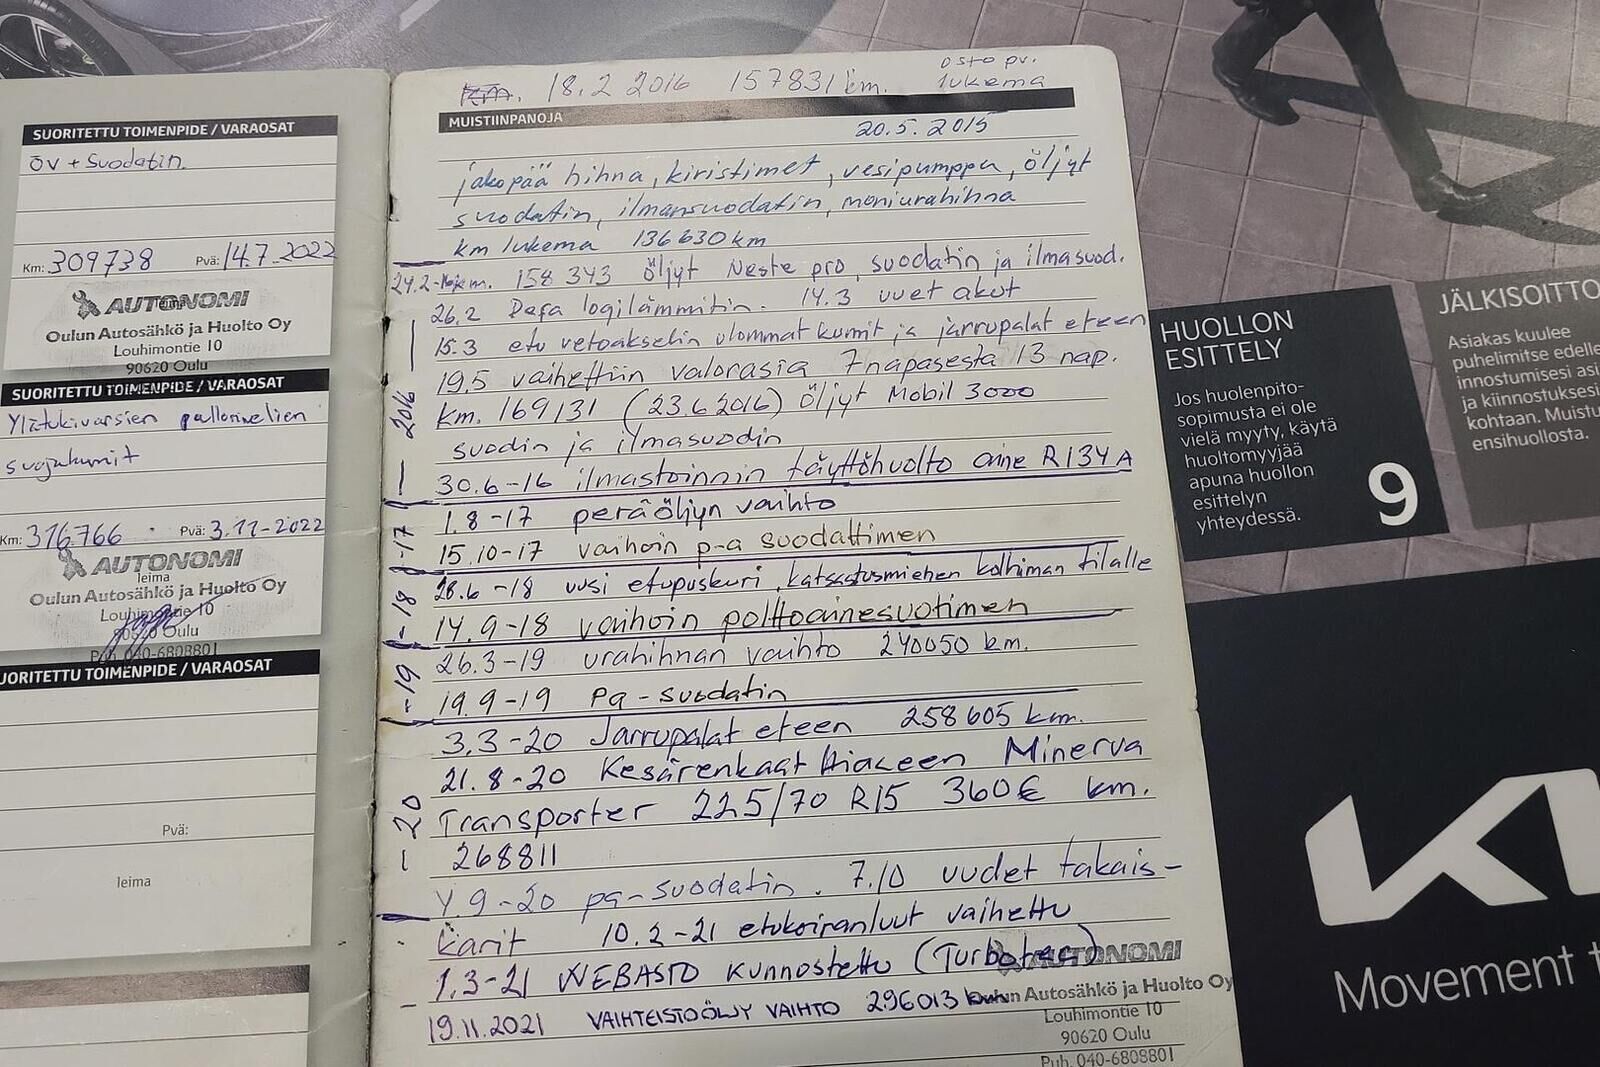 SUORITETTU TOIMENPIDE / VARAOSAT
öv + Suodatin.
Km: 309738 Pvä: 14.7.2022
leima
AUTONOMI
Oulun Autosähkö ja Huolto Oy
Louhimontie 10
90620 Oulu
SUORITETTU TOIMENPIDE / VARAOSAT
Ylätukivarsien pallonivelien
suojakumit
Km: 316766 Pvä: 3.11-2022
AUTONOMI
leima
Oulun Autosähkö ja Huolto Oy
Louhimontie 10
90620 Oulu
Puh. 040-6808801
SUORITETTU TOIMENPIDE / VARAOSAT
Pvä:
leima
Km. 18.2 2016 157831 km. osto pv.
lukema
MUISTIINPANOJA
20.5.2015
jakopää hihna, kiristimet, vesipumppu, öljyt
suodatin, ilmansuodatin, moniurahihna
km lukema 136630 km
24.2- km. 158343 öljyt Neste pro, suodatin ja ilmasuod.
26.2 Defa logilämmitin. 14.3 uuet akut
15.3 etu vetoakselin ulommat kumit ja jarrupalat eteen
19.5 vaihettiin valorasia 7napasesta 13 nap.
Km. 169131 (23.6 2016) öljyt Mobil 3000
suodin ja ilmasuodin
30.6-16 ilmastoinnin täyttöhuolto aine R134A
1.8-17 peräöljyn vaihto
15.10-17 vaihoin p-a suodattimen
28.6-18 uusi etupuskuri, katsastusmiehen kolhiman tilalle
14.9-18 vaihoin polttoainesuotimen
26.3-19 urahihnan vaihto 240050 km.
19.9-19 Pa-suodatin
3.3-20 Jarrupalat eteen 258605 km.
21.8-20 Kesärenkaat Hiaceen Minerva
Transporter 225/70 R15 360€ km.
268811
Y 9-20 pa-suodatin. 7.10 uudet takais-
karit 10.2-21 etukoiranluut vaihettu
1.3-21 WEBASTO kunnostettu (Turbotec)
19.11.2021 VAIHTEISTOÖLJY VAIHTO 296013 km
2016
-17
-18
-19
-20
AUTONOMI
Oulun Autosähkö ja Huolto Oy
Louhimontie 10
90620 Oulu
Puh. 040-6808801
HUOLLON
ESITTELY
Jos huolenpito-
sopimusta ei ole
vielä myyty, käytä
huoltomyyjää
apuna huollon
esittelyn
yhteydessä.
9
JÄLKISOITTO
Asiakas kuulee
puhelimitse edelle
innostumisesi asi
ja kiinnostuksesi
kohtaan. Muistu
ensihuollosta.
Movement t